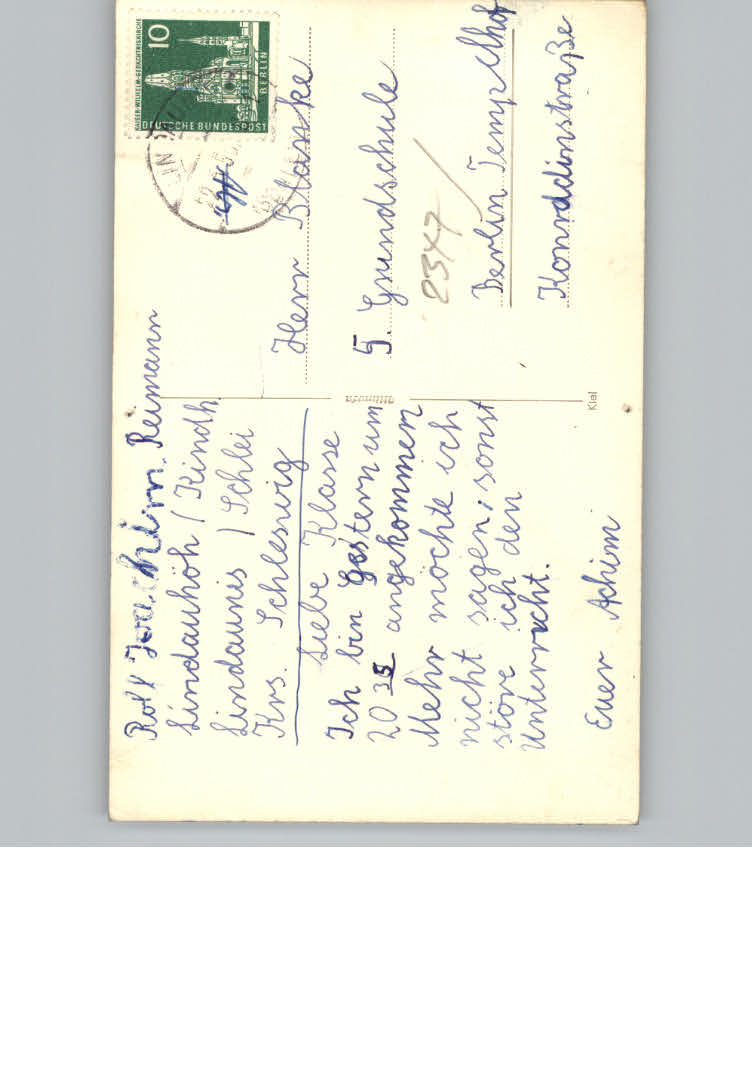 Rolf Joachim Reimann
Lindauhöh / Kindh.
Lindaunis / Schlei
Krs. Schleswig
Liebe Klasse
Ich bin Gestern um
20 35 angekommen
Mehr möchte ich
nicht sagen, sonst
störe ich den
Unterricht.
Euer Achim
KAISER-WILHELM-GEDÄCHTNISKIRCHE
10
BERLIN
DEUTSCHE BUNDESPOST
Herr Blanke
5. Grundschule
2347
Berlin Tempelhof
Konraddinstraße
Kiel